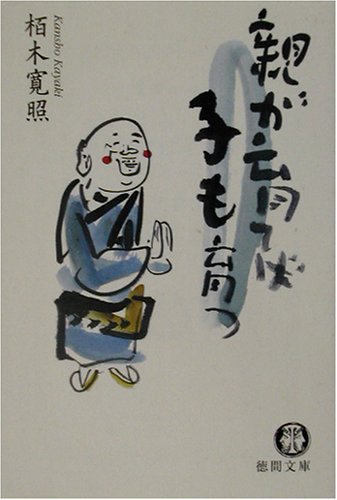 親が育てば
子も育つ
栢木寛照
Kansho Kayaki
徳間文庫